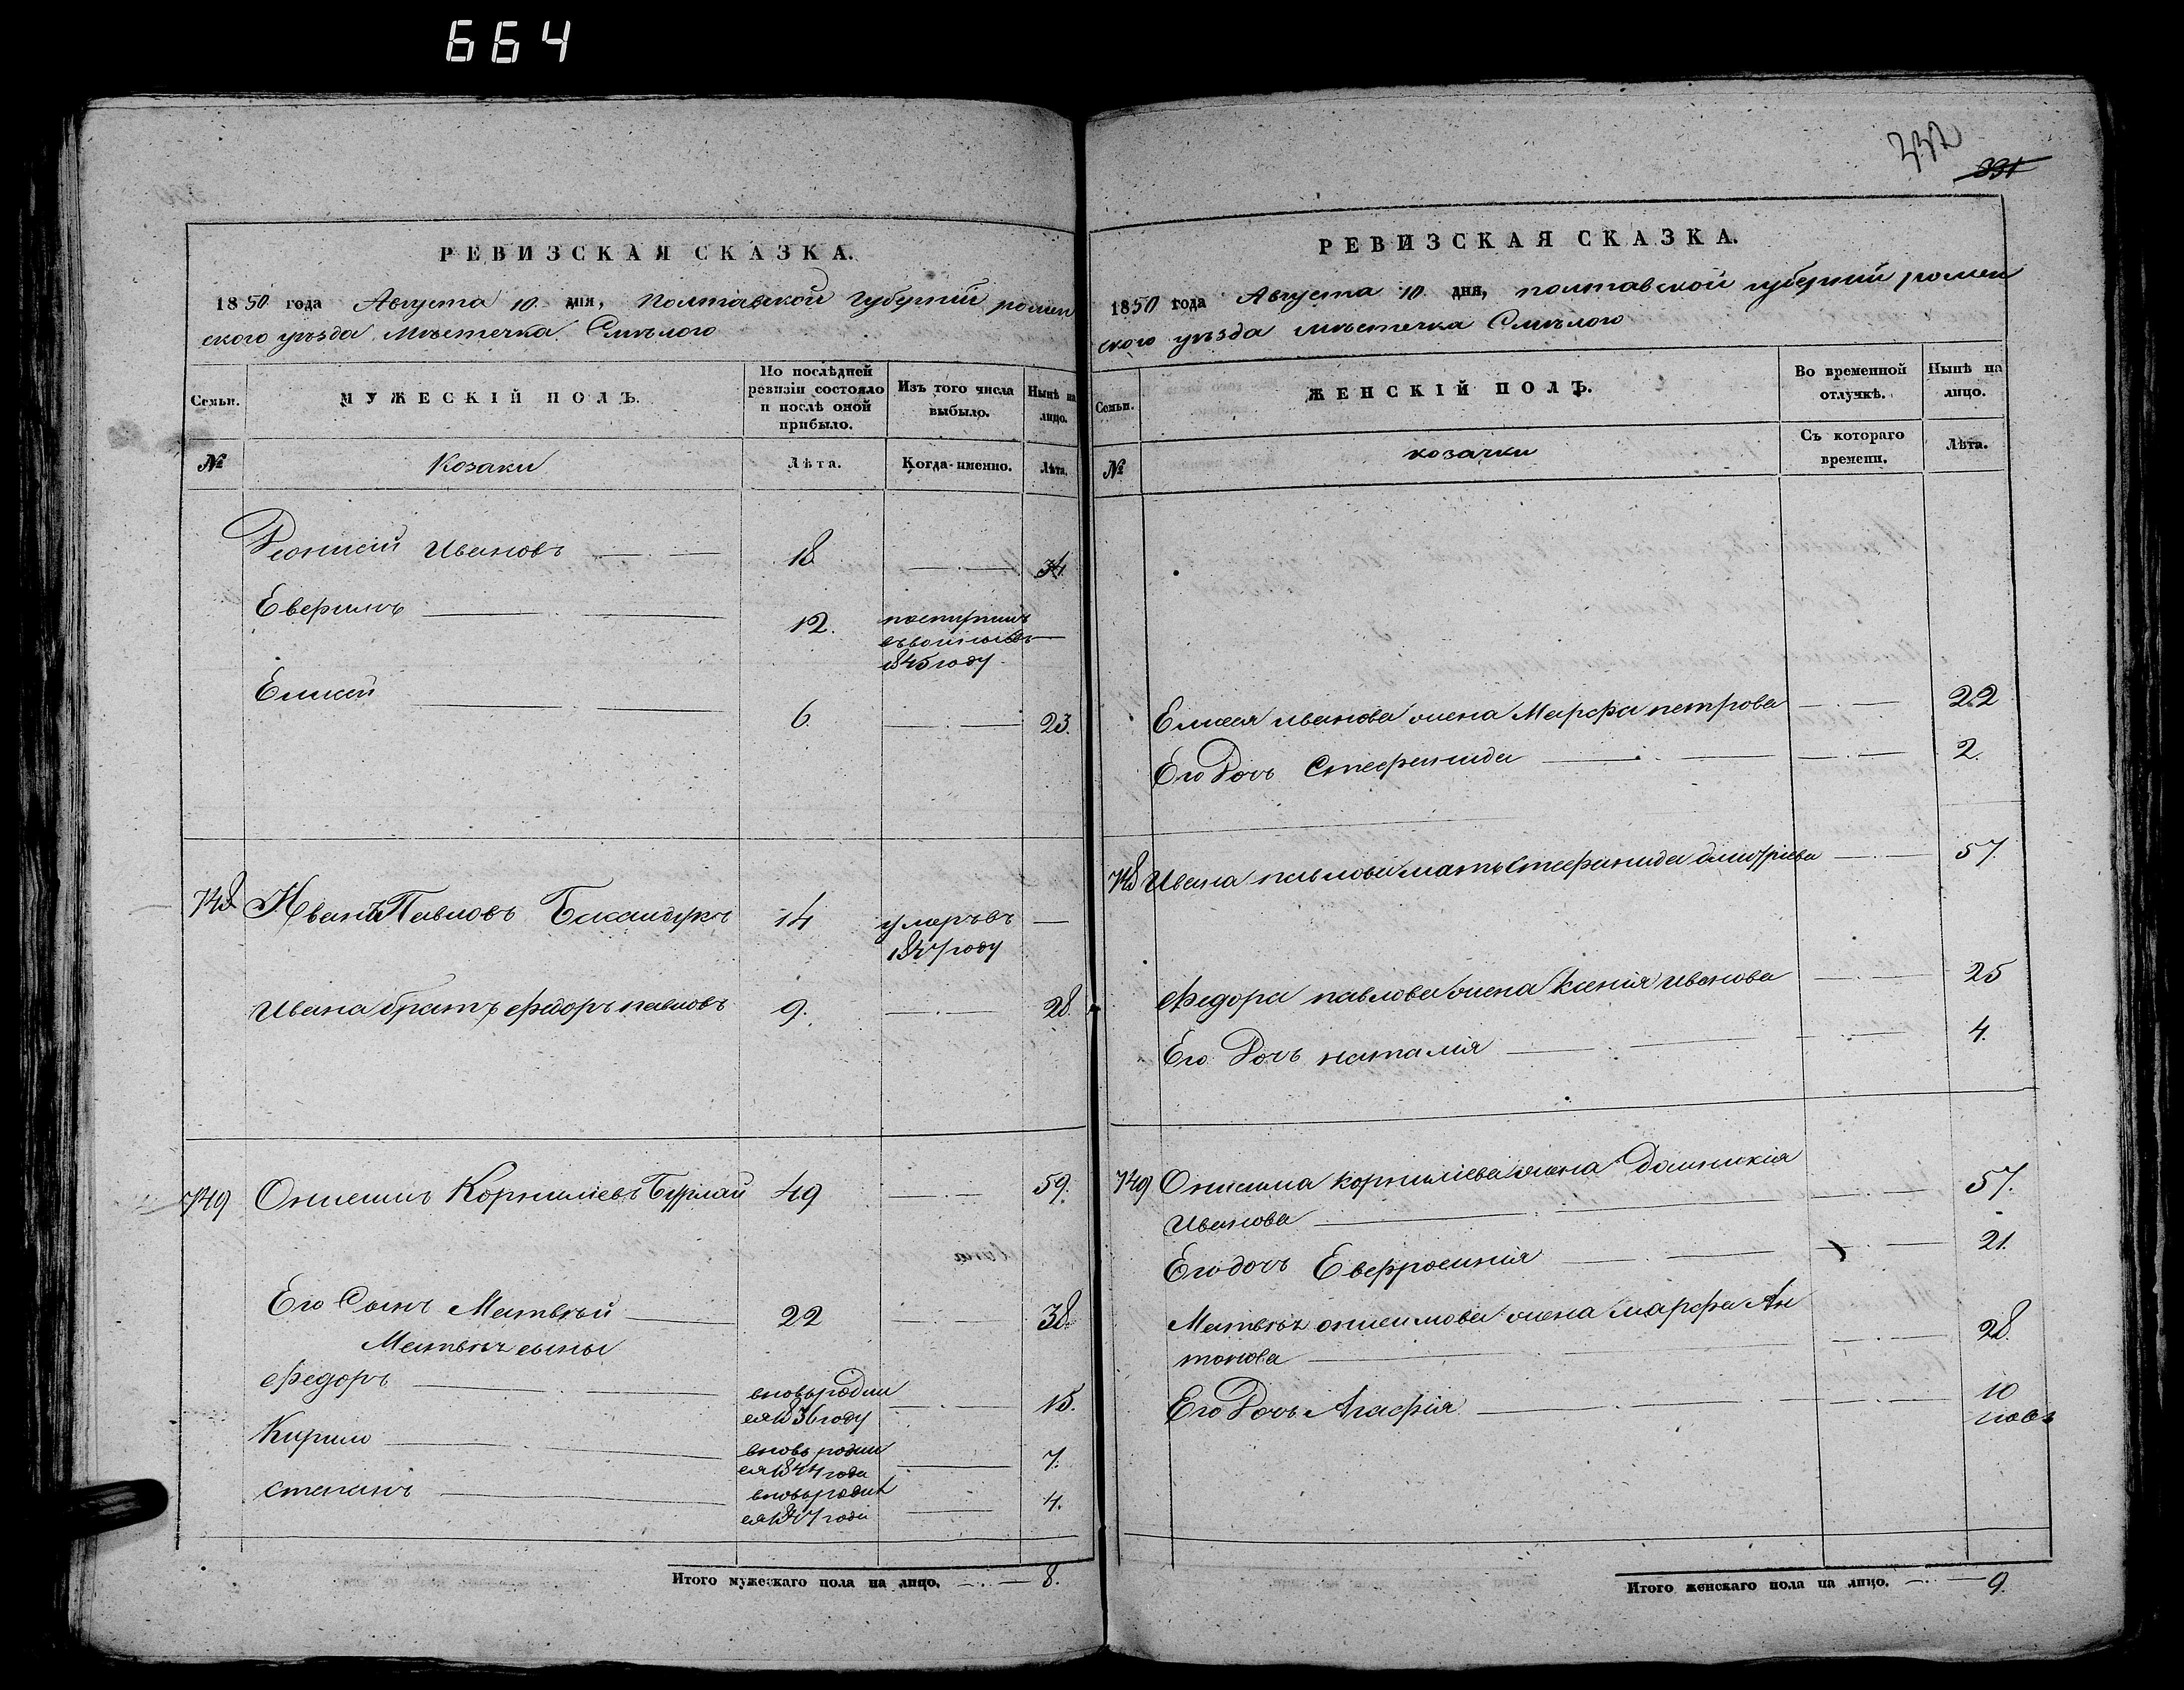 664
РЕВИЗСКАЯ СКАЗКА.
1850 года Августа 10 дня, Полтавской Губерніи ромен
ского уѣзда Мѣстечка Смѣлого
Семьи.
МУЖЕСКІЙ ПОЛЪ.
По послѣдней ревизіи состояло и послѣ оной прибыло.
Изъ того числа выбыло.
Нынѣ на лицо.
№
Козаки
Лѣта.
Когда именно.
Лѣта.
Деонисій Ивановъ 18 34.
Еверикъ 12.
1845 году
Елисей 6. 23.
748 Иванъ Павловъ 14 умеръ въ
1847 году
Ивана братъ федоръ павловъ 9. 28.
749 Онисимъ Корниліевъ Бурлай 49 59.
Его Сынъ Матвѣй 22 38.
Матвѣя сыны
федоръ вновь родил
ся 1836 году 15.
Кирило вновь родил
ся 1844 года 7.
степанъ вновь родил
ся 1847 года 4.
Итого мужескаго пола на лицо. 8.
332
331
РЕВИЗСКАЯ СКАЗКА.
1850 года Августа 10 дня, полтавской губерніи ромен
ского уѣзда мѣстечка Смѣлого
Семьи.
ЖЕНСКІЙ ПОЛЪ.
Во временной отлучкѣ.
Нынѣ на лицо.
№
козачки
Съ котораго времени.
Лѣта.
Елисея иванова жена Марфа петрова 22
Его Дочь Стефанида 2.
748 Ивана павлова мать Стефанида дмитріева 57.
федора павлова жена Ксенія иванова 25
Его Дочь наталія 4.
749 Онисима корниліева жена Домникія
Иванова 57.
Его дочь Евфросинія 21.
Матвѣя онисимова жена марфа Ан
тонова 28.
Его Дочь Агафія 10
Итого женскаго пола на лицо. 9.